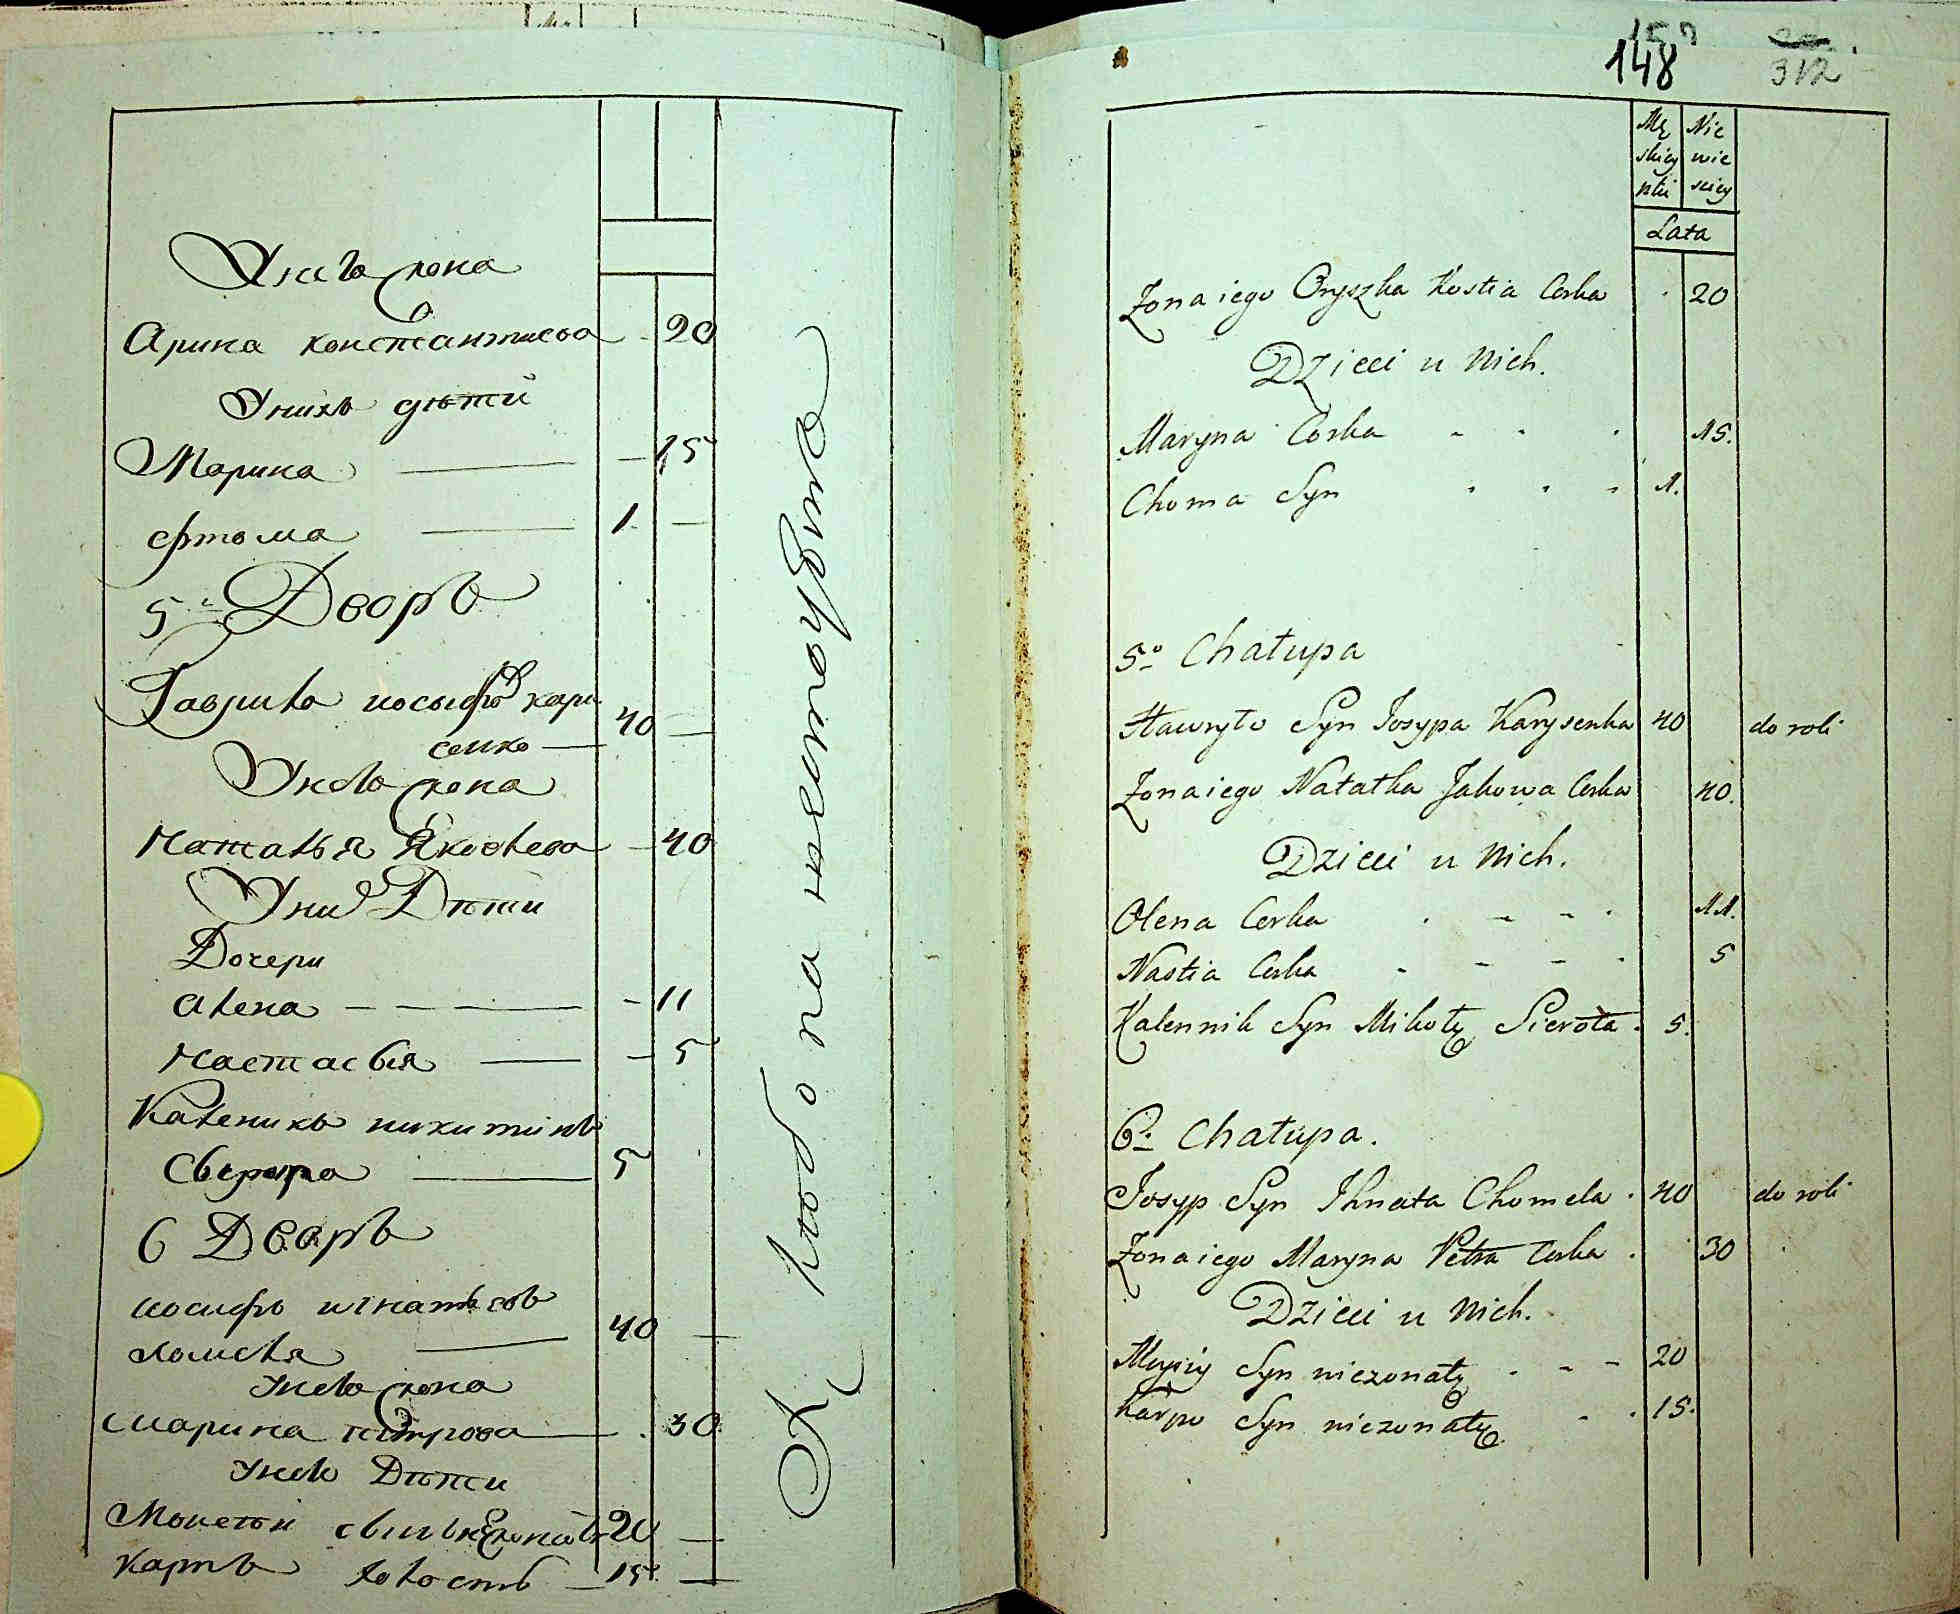 У него жена
Арина константинова - 20
У нихъ дѣти
Марина — 15
Фтома 1. —
5й Дворъ
Гаврило иосыфовъ кари
сенко — 40 —
У него жена
Наталья Яковлева - 40
У них Дѣти
Дочери
Алена - 11
Настасья - 5
Каленикъ никитинъ
5
6 Дворъ
иосифъ игнатьевъ
хомеля 40 —
У него жена
марина петрова . 30
У него Дѣти
Моисей 20 —
карпъ холостъ - 15 —
148
312
Mę Nie
skiey wie
płci sciey
Lata
Zona iego Oryszka Kostia Corka . 20
Dzieci u Nich.
Maryna Corka - . . 15.
Choma Syn . . . 1.
5o Chałupa
Hawryło Syn Josypa Karysenka 40 do roli
Zona iego Natałka Jakowa Corka 40.
Dzieci u Nich.
Olena Corka . - - . 11.
Nastia Corka . - - . 5
Kalennik Syn Mikoły Sierota . 5.
6o Chałupa.
Josyp Syn Ihnata Chomela . 40 do roli
Zona iego Maryna Petra Corka . 30
Dzieci u Nich.
Syn niezonaty . - - 20
Karpo Syn niezonaty . . 15.